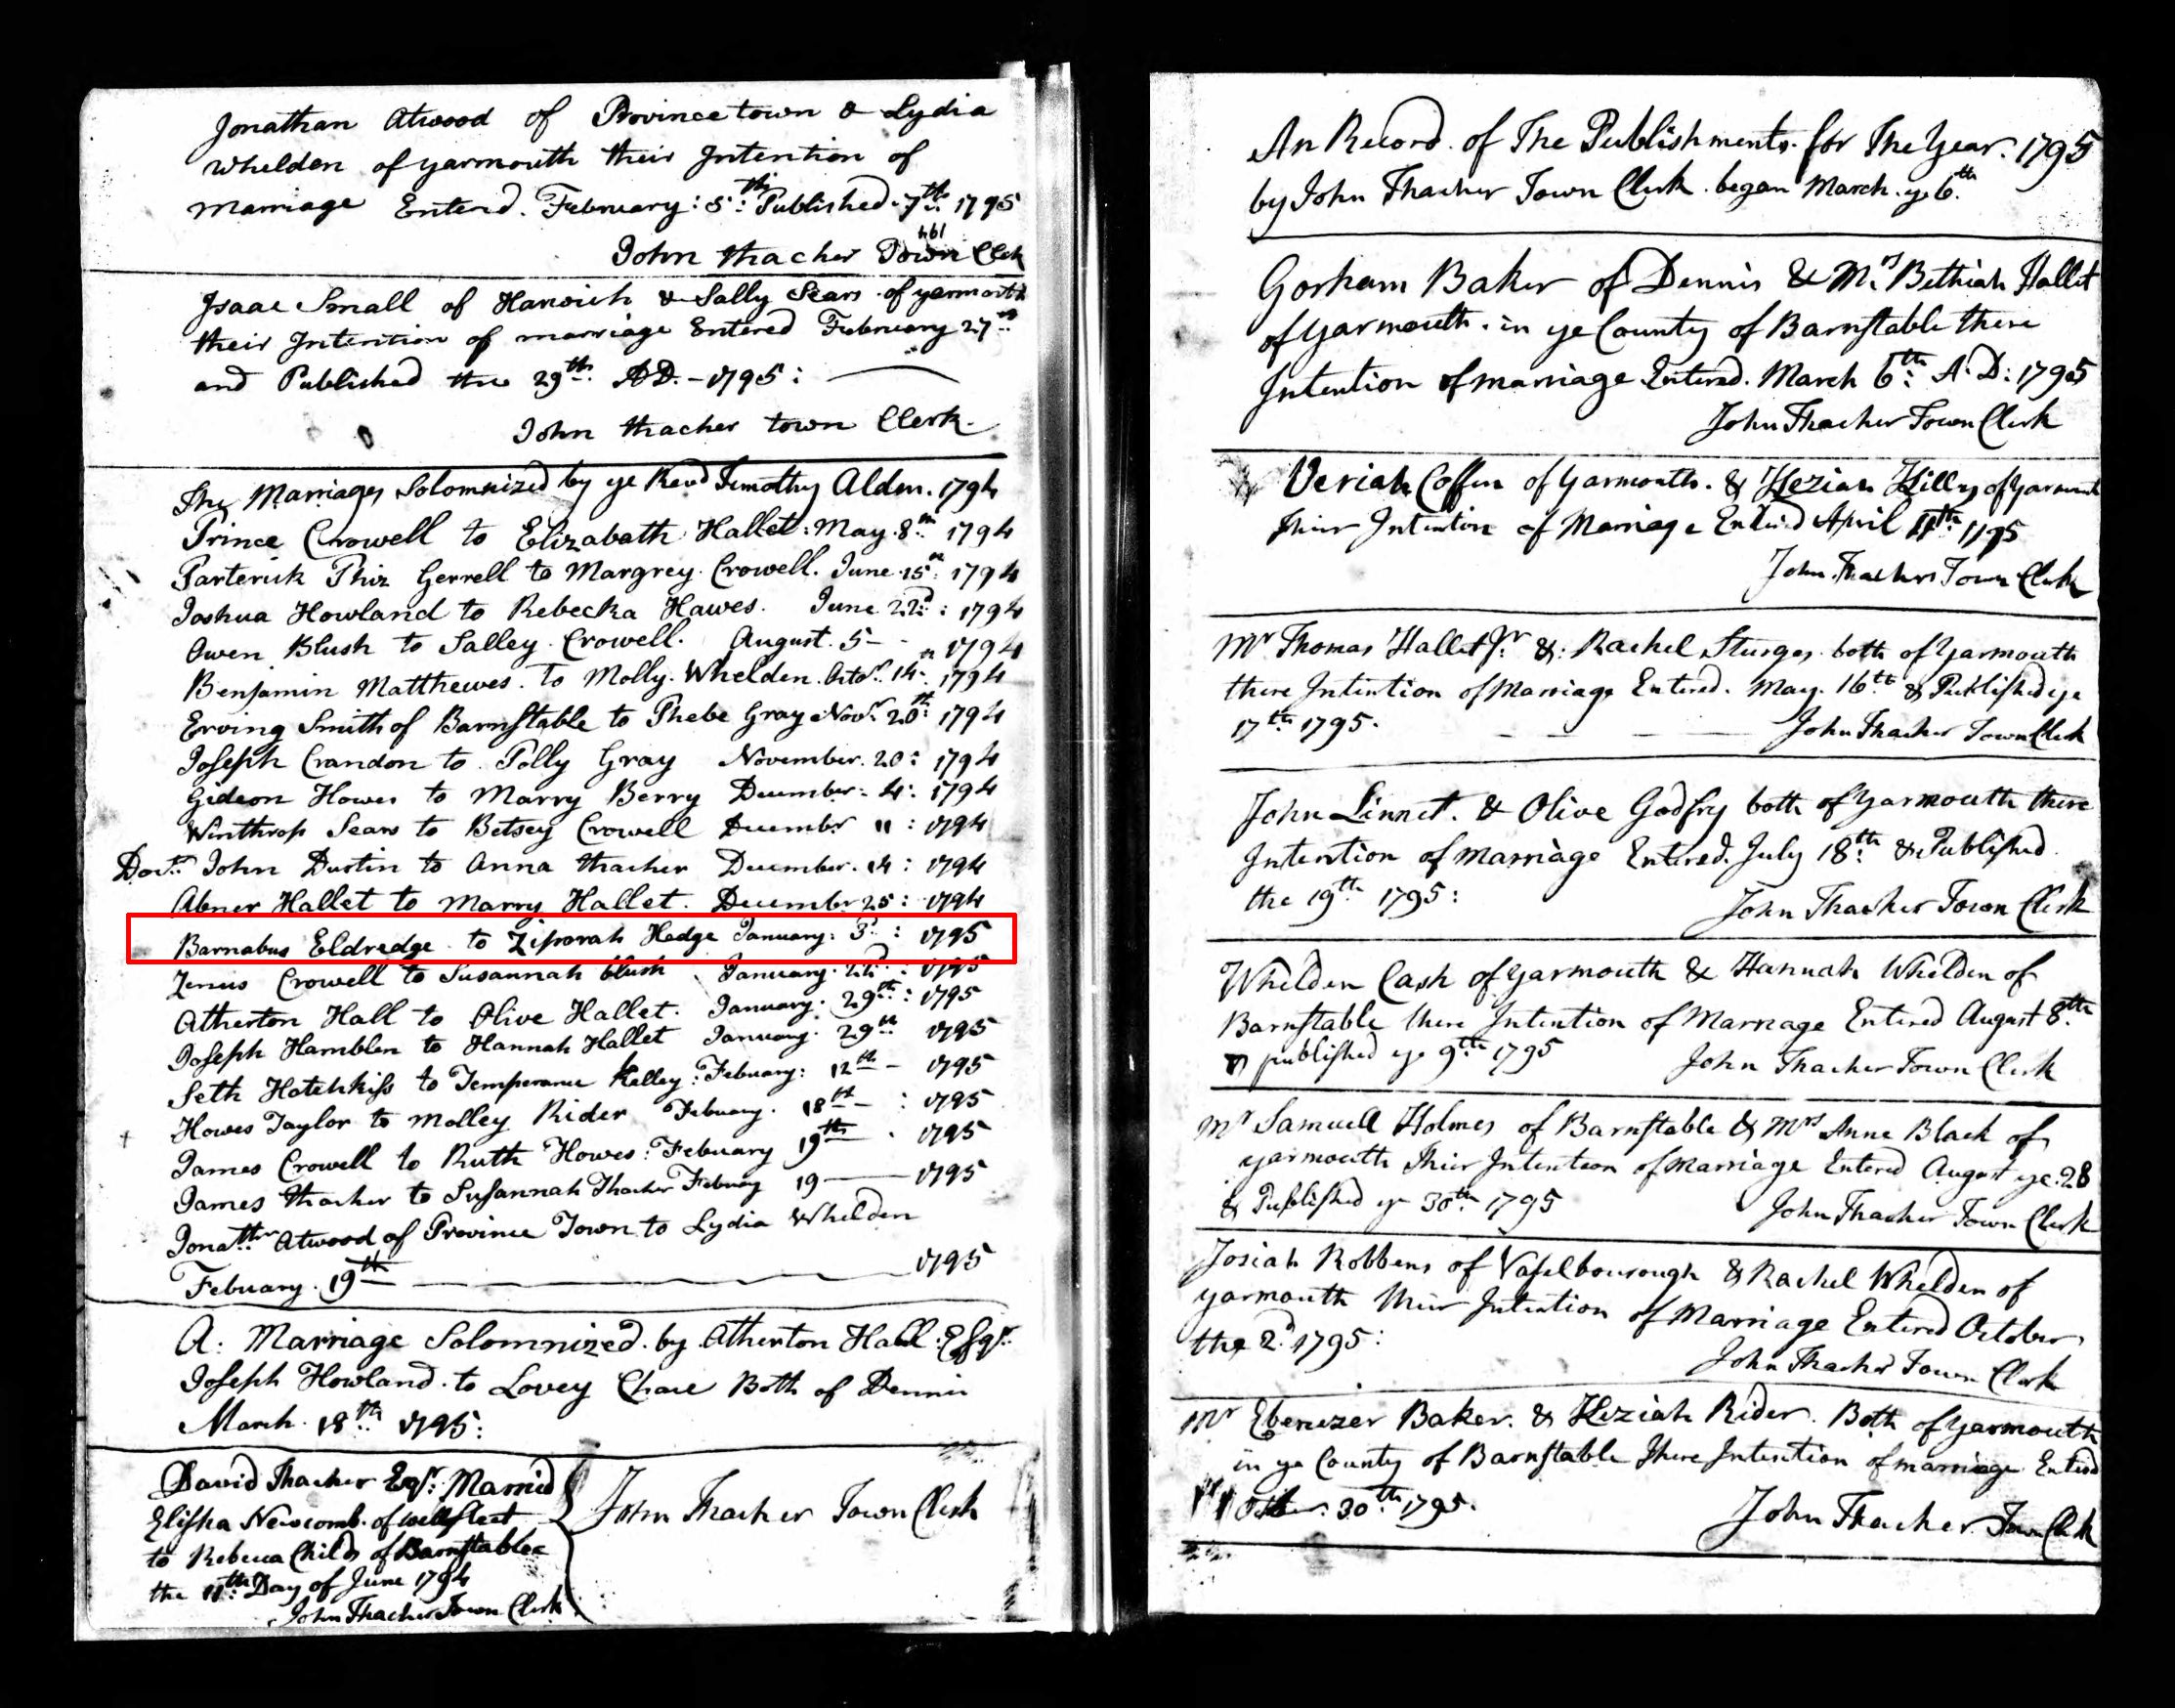 Jonathan Atwood of Provincetown & Lydia
Whelden of yarmouth their Intention of
marriage Entered. February: 5th: Published. 7th: 1795
John thacher Town Clerk
Isaac Small of Harwich & Sally Sears of yarmouth
their Intention of marriage Entered February 27th
and Published the 29th: AD. - 1795:
John thacher town Clerk.
The Marriages Solomnized by ye Revd Timothy Alden. 1794
Prince Crowell to Elizabath Hallet: May. 8th 1794
Parterick Phiz Gerrell to Margrey Crowell. June. 15th: 1794
Joshua Howland to Rebecka Hawes. June 22d: 1794
Owen Blush to Salley Crowell. August. 5 - 1794
Benjamin Matthewes. to Molly. Whelden. Octor. 14th. 1794
Erving Smith of Barnstable to Phebe Gray Novr. 20th: 1794
Joseph Crandon to Polly Gray November. 20: 1794
Gideon Howes to Marry Berry December: 4: 1794
Winthrop Sears to Betsey Crowell Decembr 11: 1794
Doctr. John Dustin to Anna thacher December. 14: 1794
Abner Hallet to Marry Hallet. Decembr 25: 1794
Barnabus Eldredge to Ziporah Hedge January: 3d: 1795
Zenus Crowell to Susannah blush January. 22d: 1795
Atherton Hall to Olive Hallet. January: 29th: 1795
Joseph Hamblen to Hannah Hallet January. 29th 1795
Seth Hotchkiss to Temperance Kelley: Febuary: 12th - 1795
Howes Taylor to Molley Rider Febuary. 18th - : 1795
James Crowell to Ruth Howes: Febuary 19th - . 1795
James thacher to Susannah Thacher Febuary 19 - 1795
Jonathn Atwood of Province Town to Lydia Whelden
Febuary. 19th - 1795
A: Marriage Solomnized by Atherton Hall: Esqr.
Joseph Howland. to Lovey Chase Both of Dennis
March. 18th 1795:
David Thacher Esqr: Married
Elisha Newcomb of wellfleet
to Rebecca Childs of Barnstable
the 11th: Day of June 1794
John Thacher Town Clerk
John Thacher Town Clerk
An Record. of The Publishments. for The Year. 1795
by John Thacher Town Clerk. began March. ye 6th
Gorham Baker of Dennis & Mrs Bethiah Hallet
of Yarmouth. in ye County of Barnstable there
Intention of marriage Entered. March 6th: A.D: 1795
John Thacher Town Clerk
Veriah Coffin of Yarmouth. & Keziah Killey of Yarmouth
Their Intention of Marriage Entered April 11th 1795
John Thacher Town Clerk
Mr Thomas Hallet Jr: & Rachel Sturges both of Yarmouth
there Intention of Marriage Entered. May. 16th & Published ye
17th 1795.
John Thacher Town Clerk
John Linnet. & Olive Godfry both of Yarmouth there
Intention of Marriage Entered. July 18th: & Published
the 19th 1795:
John Thacher Town Clerk
Whelden Cash of Yarmouth & Hannah Whelden of
Barnstable there Intention of Marriage Entered August 8th:
& published ye 9th 1795
John Thacher Town Clerk
Mr Samuell Holmes of Barnstable & Mrs Anne Black of
yarmouth Their Intention of Marriage Entered August ye. 28
& Published ye 30th 1795
John Thacher Town Clerk
Josiah Robbens of Vasselbourough & Rachel Whelden of
yarmouth Their Intention of Marriage Entered October
the 2d 1795:
John Thacher Town Clerk
Mr Ebenezer Baker. & Keziah Rider. Both of Yarmouth
in ye County of Barnstable There Intention of marriage Entered
30th 1795.
John Thacher Town Clerk